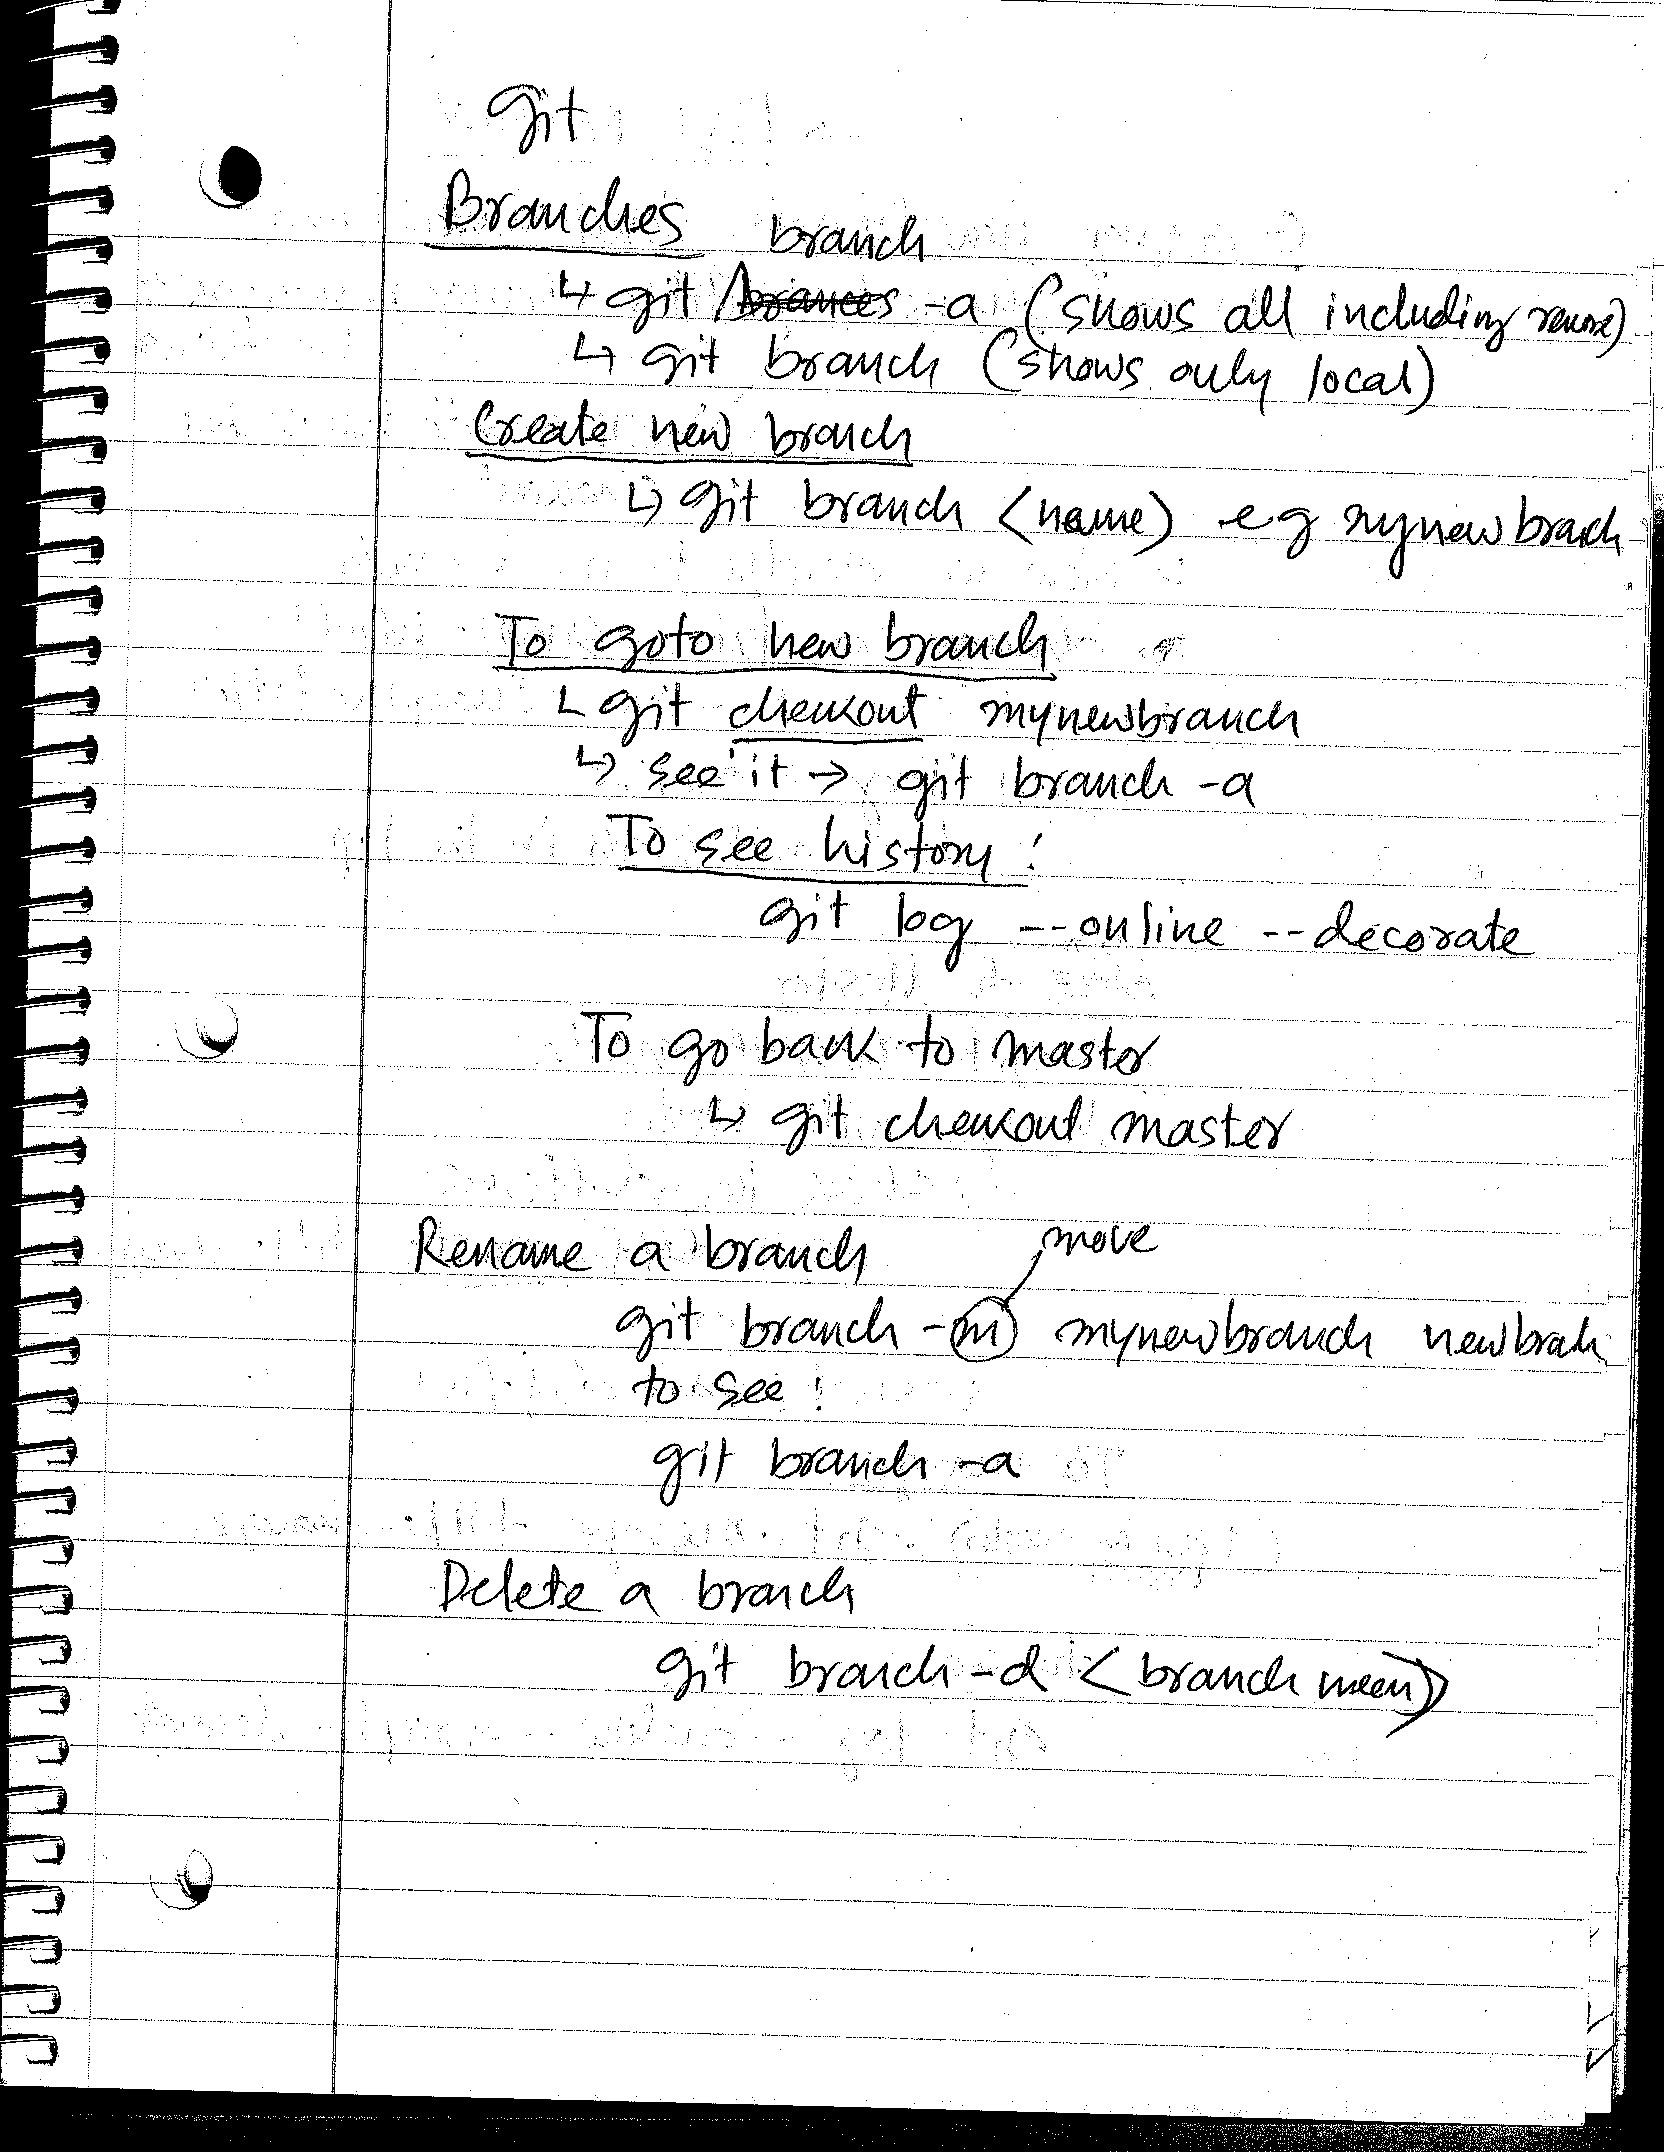 Git
Branches branch
↳ git brances -a (shows all including remote)
↳ git branch (shows only local)
Create new branch
↳ git branch <name> eg mynewbrach
To goto new branch
↳ git checkout mynewbranch
↳ see it → git branch -a
To see history:
git log --online --decorate
To go back to master
↳ git checkout master
Rename a branch move
git branch -m mynewbranch newbrah
to see:
git branch -a
Delete a branch
git branch -d <branch